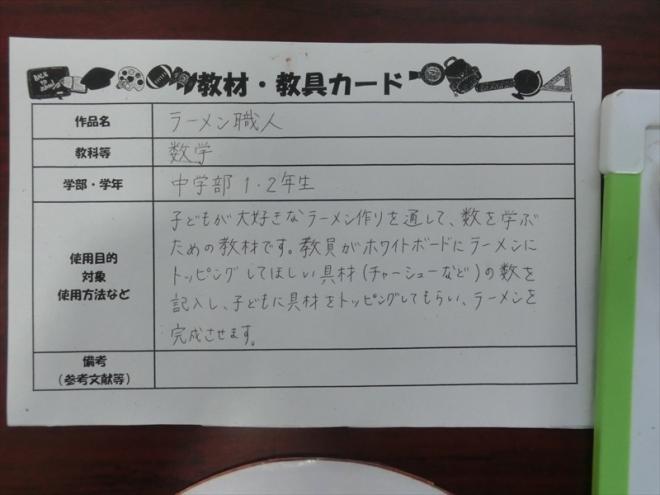 教材・教具カード
作品名 ラーメン職人
教科等 数学
学部・学年 中学部 1・2年生
使用目的
対象
使用方法など
子どもが大好きなラーメン作りを通して、数を学ぶ
ための教材です。教員がホワイトボードにラーメンに
トッピングしてほしい具材(チャーシューなど)の数を
記入し、子どもに具材をトッピングしてもらい、ラーメンを
完成させます。
備考
(参考文献等)